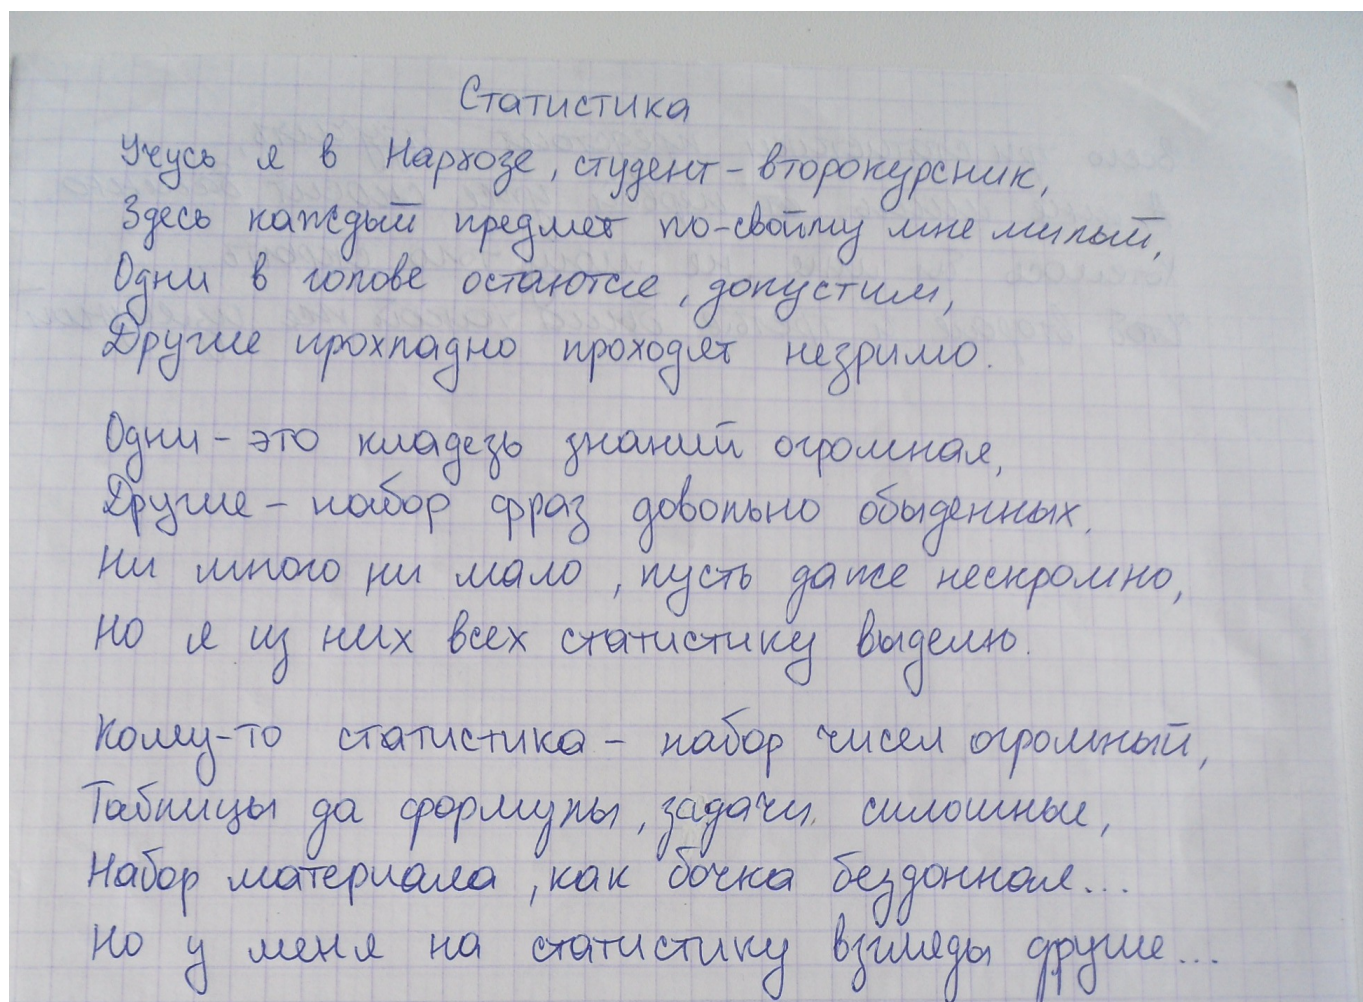 Статистика
Учусь я в Нархозе, студент - второкурсник,
Здесь каждый предмет по-свойму мне милый,
Одни в голове остаются, допустим,
Другие прохладно проходят незримо.
Одни - это кладезь знаний огромная,
Другие - набор фраз довольно обыденных,
Ни много ни мало, пусть даже нескромно,
Но я из них всех статистику выделю.
Кому-то статистика - набор чисел огромный,
Таблицы да формулы, задачи сплошные,
Набор материала, как бочка бездонная...
Но у меня на статистику взгляды другие...